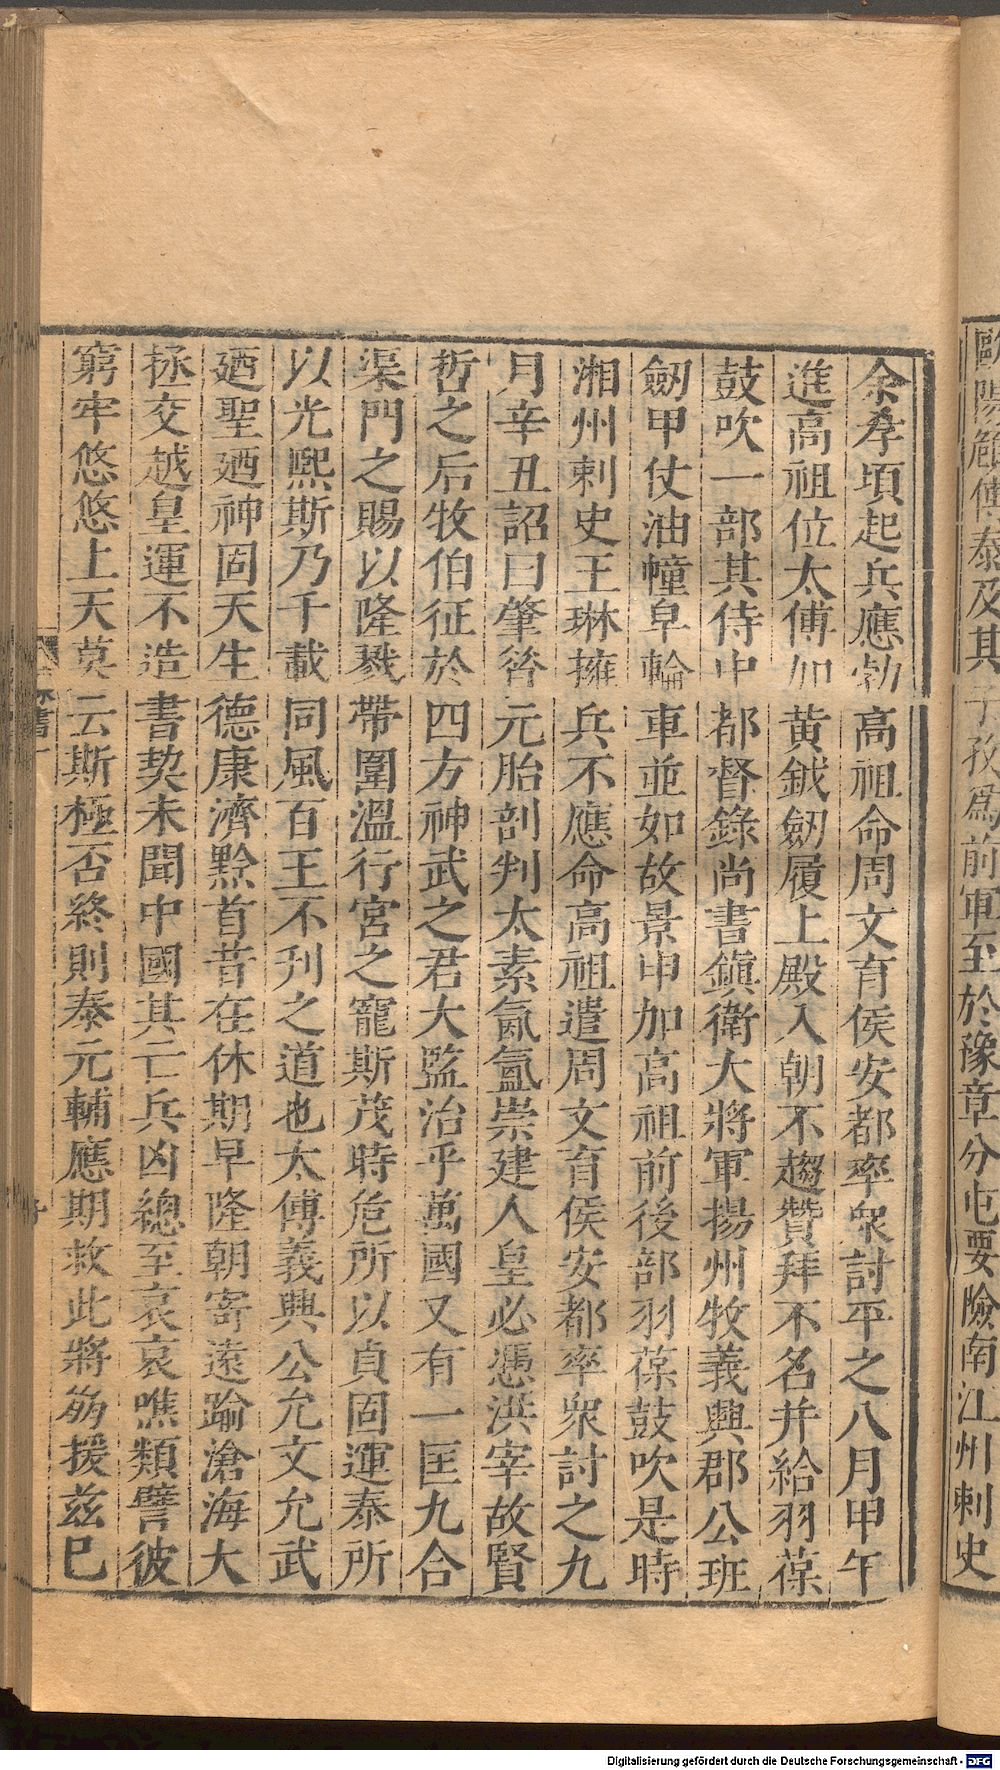 歐陽頠傅泰及其子孜爲前軍至於豫章分屯要險南江州刺史
余孝頃起兵應勃高祖命周文育侯安都率眾討平之八月甲午
進高祖位太傅加黃鉞劒履上殿入朝不趨贊拜不名并給羽葆
鼓吹一部其侍中都督錄尚書鎮衛大將軍揚州牧義興郡公班
劒甲仗油幢皁輪車並如故景申加高祖前後部羽葆鼓吹是時
湘州刺史王琳擁兵不應命高祖遣周文育侯安都率眾討之九
月辛丑詔曰肇昝元胎剖判太素氤氳崇建人皇必憑洪宰故賢
哲之后牧伯征於四方神武之君大監治乎萬國又有一匡九合
渠門之賜以隆戮帶圍溫行宮之寵斯茂時危所以貞固運泰所
以光熙斯乃千載同風百王不刊之道也太傅義興公允文允武
廼聖廼神固天生德康濟黔首昔在休期早隆朝寄遠踰滄海大
拯交越皇運不造書契未聞中國其亡兵凶總至哀哀噍類譬彼
窮牢悠悠上天莫云斯極否終則泰元輔應期救此將崩援茲已
Digitalisierung gefördert durch die Deutsche Forschungsgemeinschaft - DFG